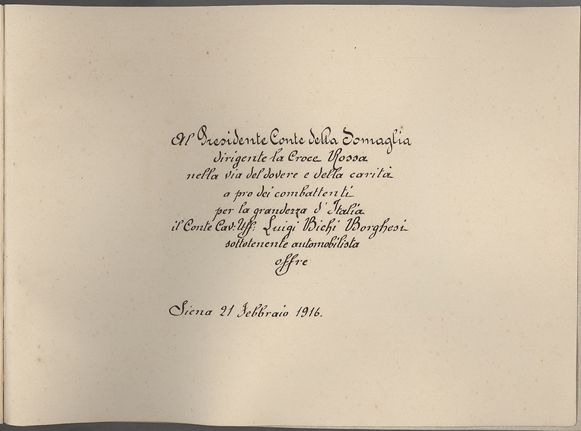 Al Presidente Conte della Somaglia
dirigente la Croce Rossa
nella via del dovere e della carità
a pro dei combattenti
per la grandezza d'Italia
il Conte Cav: Uff: Luigi Bichi Borghesi
sottotenente automobilista
offre
Siena 21 Febbraio 1916.